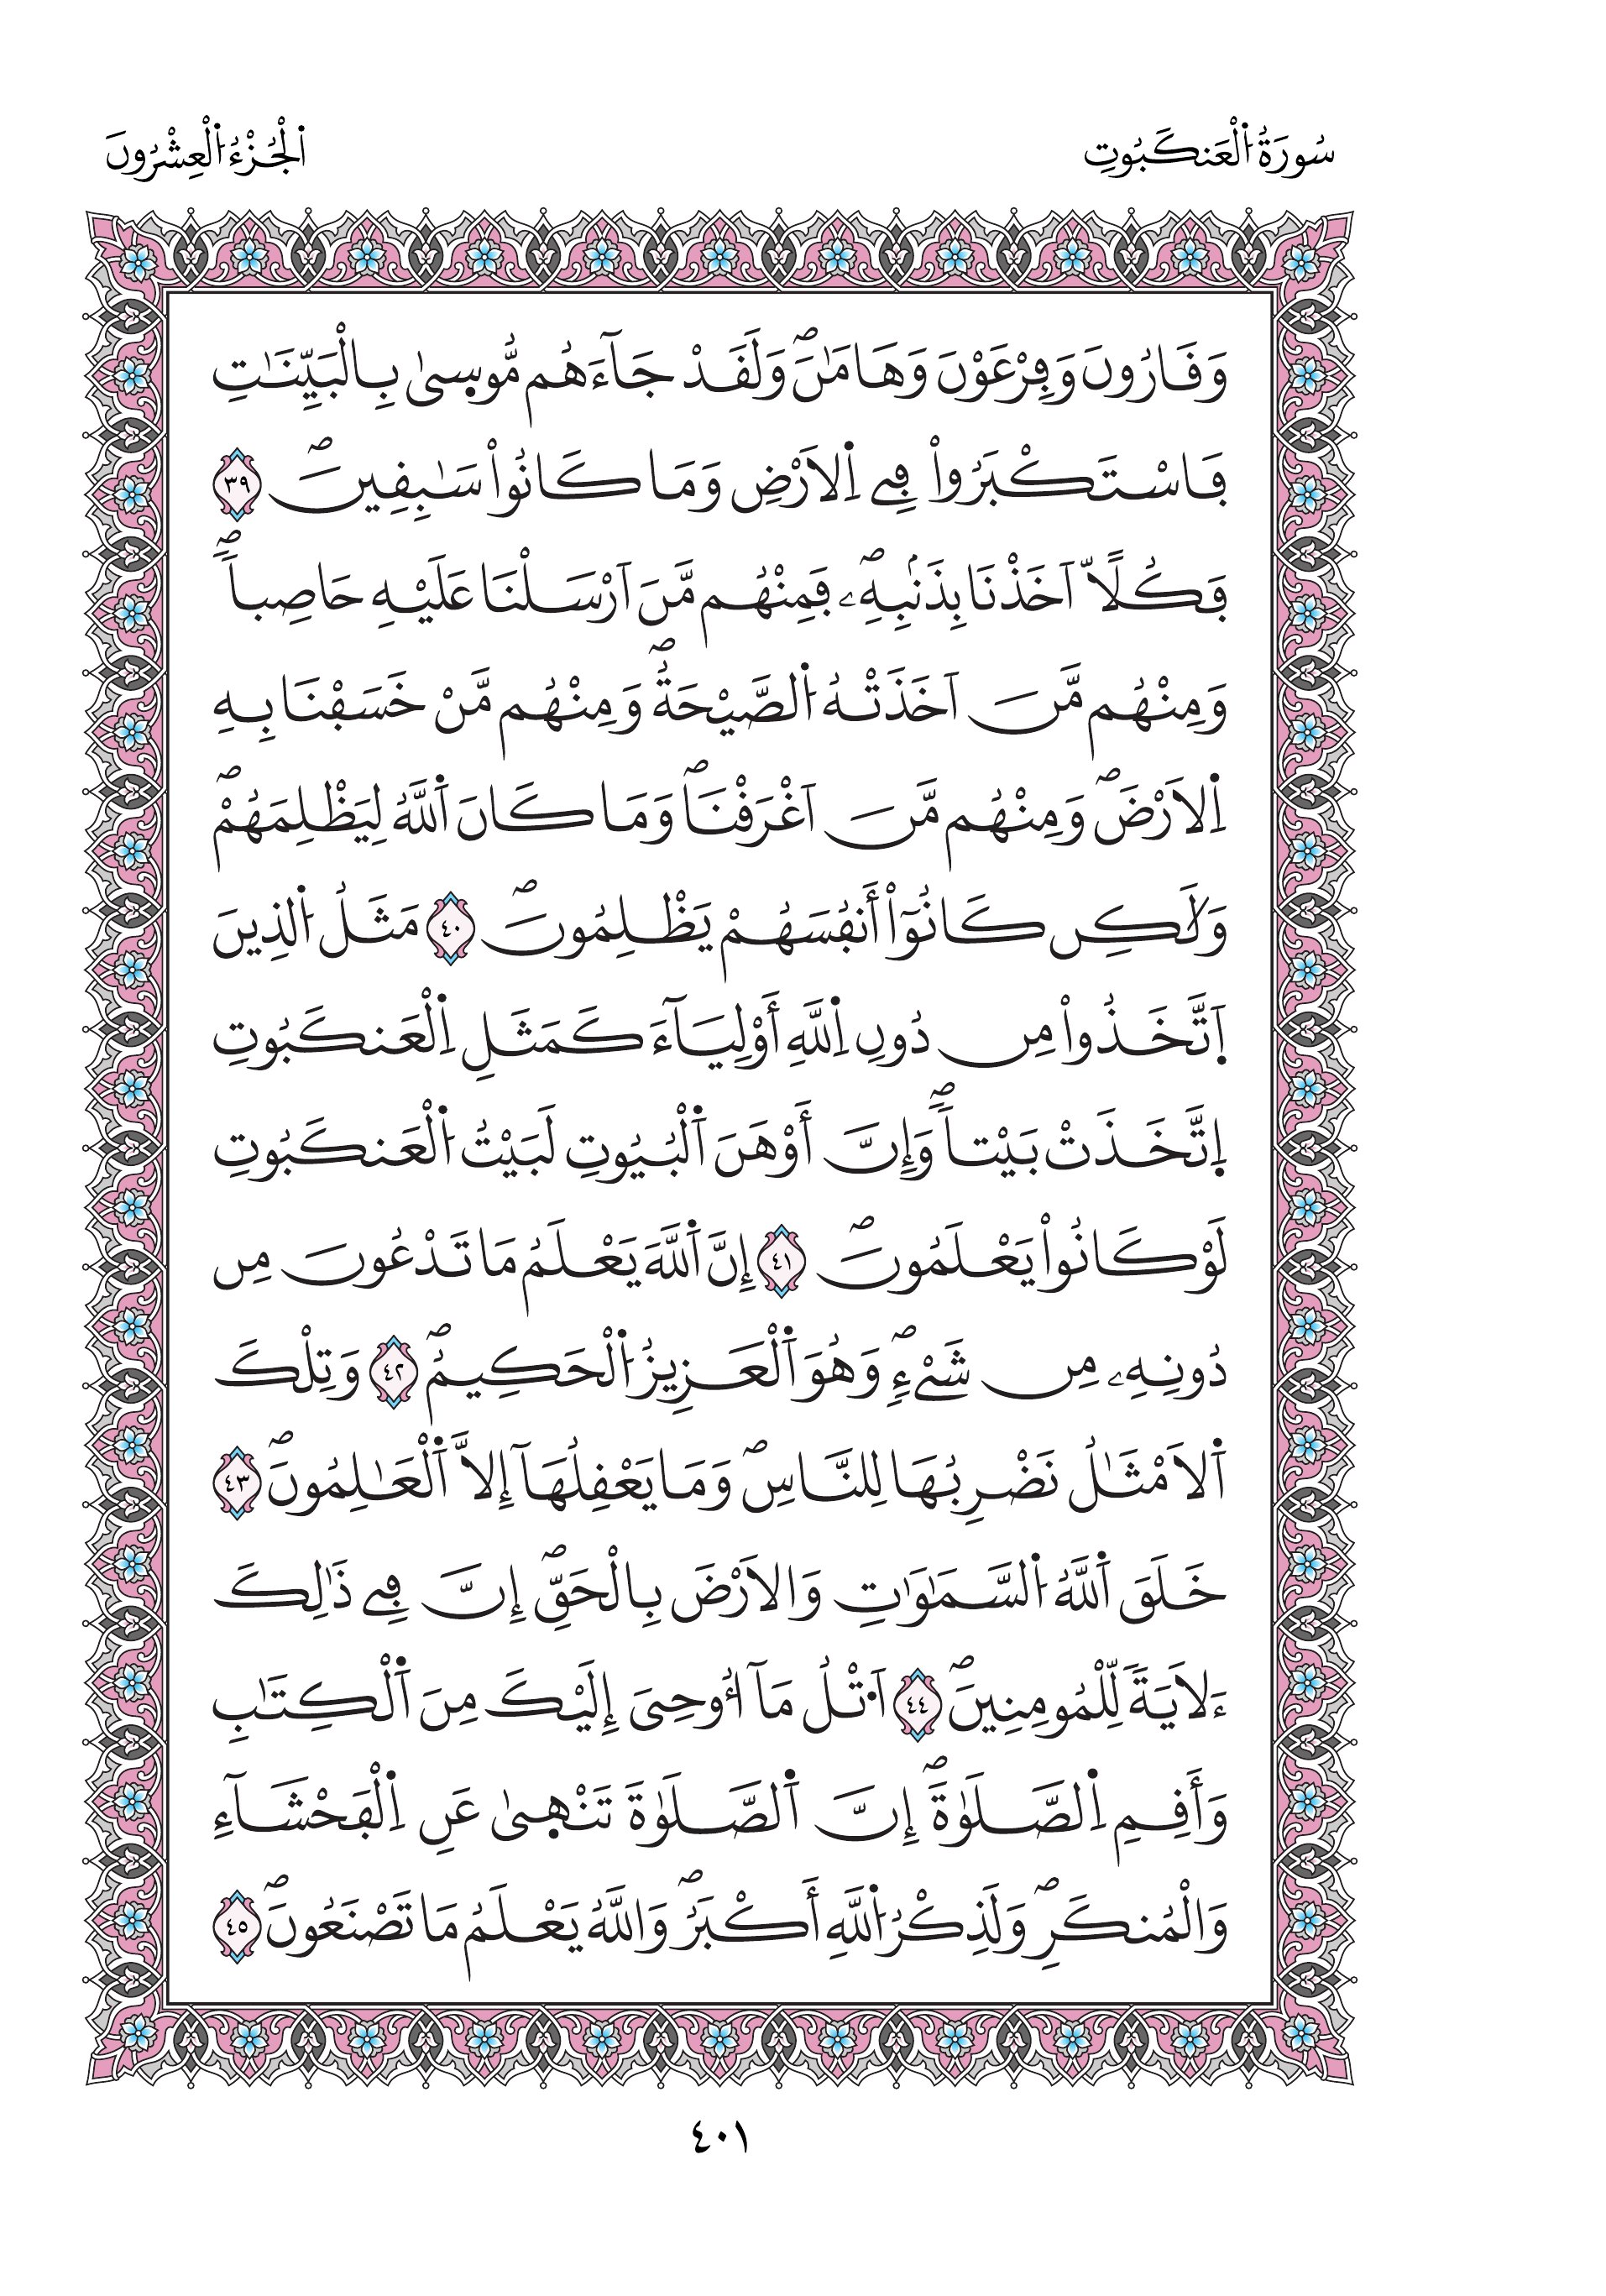 سُورَةُ اُ۬لْعَنكَبُوتِ
اَ۬لْجُزْءُ اُ۬لْعِشْرُونَ
وَقَٰرُونَ وَفِرْعَوْنَ وَهَٰمَٰنَۖ وَلَقَدْ جَآءَهُم مُّوس۪ىٰ بِالْبَيِّنَٰتِ
فَاسْتَكْبَرُواْ فِے اِ۬لَارْضِ وَمَا كَانُواْ سَٰبِقِينَۖ ٣٩
فَكُلًّا اَخَذْنَا بِذَنۢبِهِۦۖ فَمِنْهُم مَّنَ اَرْسَلْنَا عَلَيْهِ حَاصِباٗۖ
وَمِنْهُم مَّنَ اَخَذَتْهُ اُ۬لصَّيْحَةُۖ وَمِنْهُم مَّنْ خَسَفْنَا بِهِ
اِ۬لَارْضَۖ وَمِنْهُم مَّنَ اَغْرَقْنَاۖ وَمَا كَانَ اَ۬للَّهُ لِيَظْلِمَهُمْۖ
وَلَٰكِن كَانُوٓاْ أَنفُسَهُمْ يَظْلِمُونَۖ ٤٠ مَثَلُ اُ۬لذِينَ
اَ۪تَّخَذُواْ مِن دُونِ اِ۬للَّهِ أَوْلِيَآءَ كَمَثَلِ اِ۬لْعَنكَبُوتِ
اِ۪تَّخَذَتْ بَيْتاٗۖ وَإِنَّ أَوْهَنَ اَ۬لْبُيُوتِ لَبَيْتُ اُ۬لْعَنكَبُوتِ
لَوْ كَانُواْ يَعْلَمُونَۖ ٤١ إِنَّ اَ۬للَّهَ يَعْلَمُ مَا تَدْعُونَ مِن
دُونِهِۦ مِن شَےْءٖۖ وَهُوَ اَ۬لْعَزِيزُ اُ۬لْحَكِيمُۖ ٤٢ وَتِلْكَ
اَ۬لَامْثَٰلُ نَضْرِبُهَا لِلنَّاسِۖ وَمَا يَعْقِلُهَآ إِلَّا اَ۬لْعَٰلِمُونَۖ ٤٣
خَلَقَ اَ۬للَّهُ اُ۬لسَّمَٰوَٰتِ وَالَارْضَ بِالْحَقِّۖ إِنَّ فِے ذَٰلِكَ
ءَلَايَةٗ لِّلْمُومِنِينَۖ ٤٤ اَ۟تْلُ مَآ أُوحِيَ إِلَيْكَ مِنَ اَ۬لْكِتَٰبِ
وَأَقِمِ اِ۬لصَّلَوٰةَۖ إِنَّ اَ۬لصَّلَوٰةَ تَنْه۪ىٰ عَنِ اِ۬لْفَحْشَآءِ
وَالْمُنكَرِۖ وَلَذِكْرُ اُ۬للَّهِ أَكْبَرُۖ وَاللَّهُ يَعْلَمُ مَا تَصْنَعُونَۖ ٤٥
٤٠١